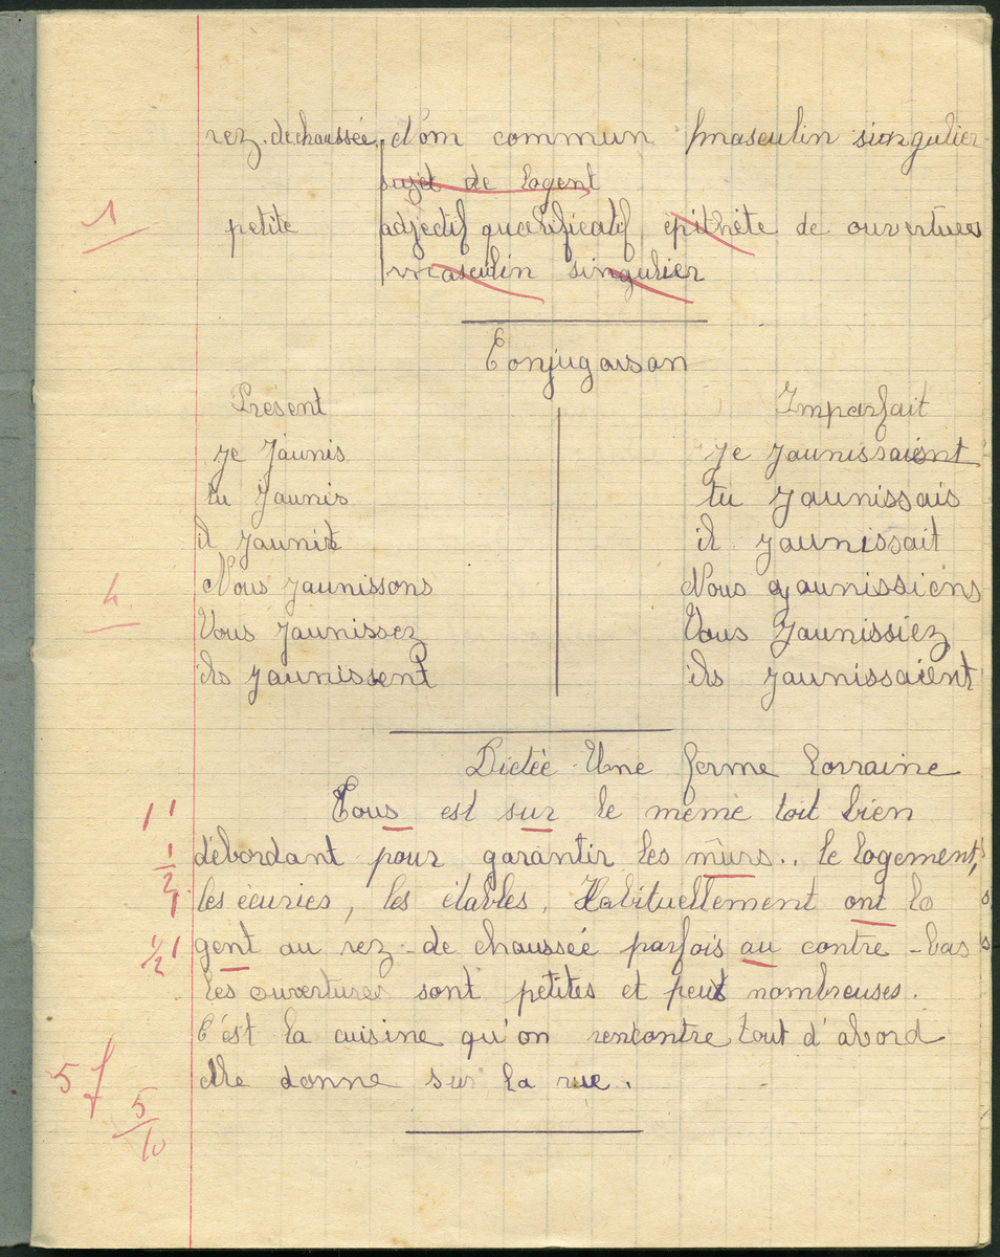 rez-de-chaussée nom commun masculin singulier
sujet de logent
1 petite adjectif qualificatif épithète de ouvertures
masculin singulier
Conjugaison
Présent Imparfait
je jaunis je jaunissaient
tu jaunis tu jaunissais
il jaunit il jaunissait
Nous jaunissons Nous jaunissiens
4
Vous jaunissez Vous jaunissiez
ils jaunissent ils jaunissaient
Dictée Une ferme lorraine
Tous est sur le même toit bien
1 1
débordant pour garantir les mûrs.. le logement,
1/2
les écuries, les étables. Habituellement ont lo
1
gent au rez-de chaussée parfois au contre-bas
1/2 1
les ouvertures sont petites et peut nombreuses.
C'est la cuisine qu'on rencontre tout d'abord
elle donne sur la rue.
5 f
5/10